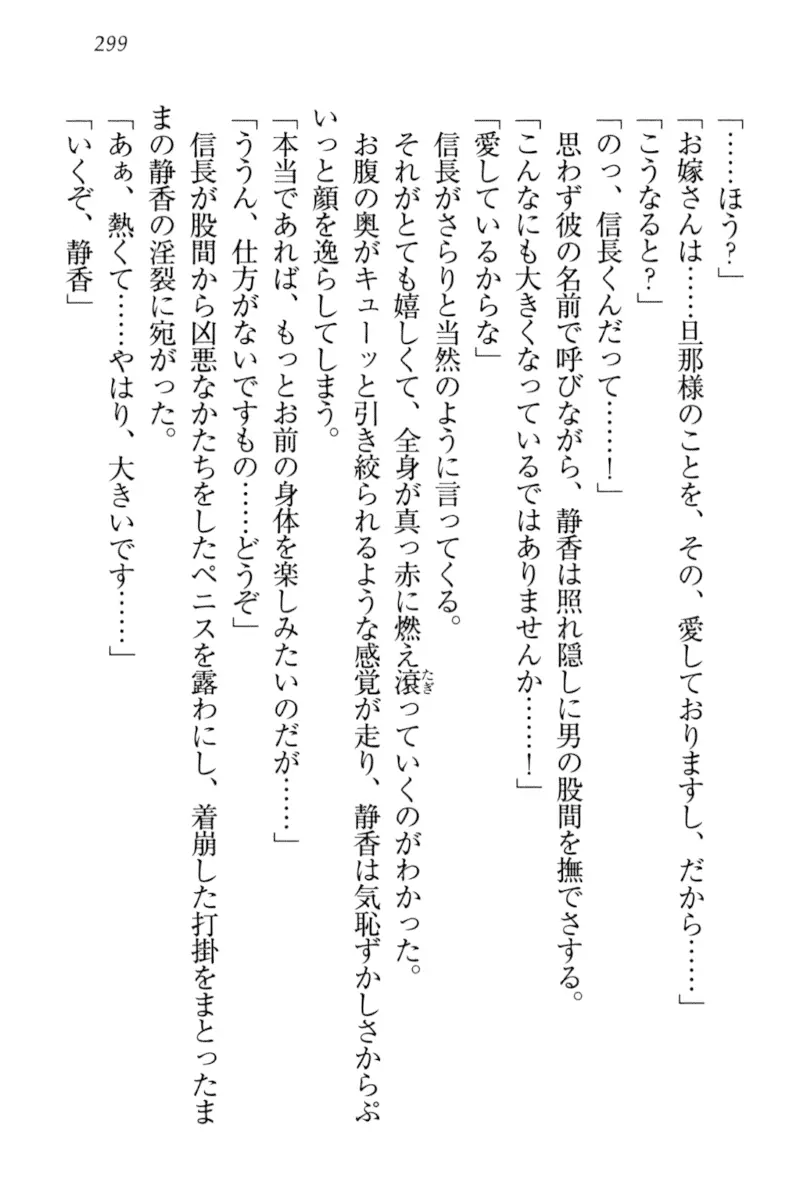 299
「……ほう?」
「お嫁さんは……旦那様のことを、その、愛しておりますし、だから……」
「こうなると?」
「のっ、信長くんだって……!」
　思わず彼の名前で呼びながら、静香は照れ隠しに男の股間を撫でさする。
「こんなにも大きくなっているではありませんか……!」
「愛しているからな」
　信長がさらりと当然のように言ってくる。
　それがとても嬉しくて、全身が真っ赤に燃え滾たぎっていくのがわかった。
　お腹の奥がキューッと引き絞られるような感覚が走り、静香は気恥ずかしさからぷ
いっと顔を逸らしてしまう。
「本当であれば、もっとお前の身体を楽しみたいのだが……」
「ううん、仕方がないですもの……どうぞ」
　信長が股間から凶悪なかたちをしたペニスを露わにし、着崩した打掛をまとったま
まの静香の淫裂に宛がった。
「あぁ、熱くて……やはり、大きいです……」
「いくぞ、静香」